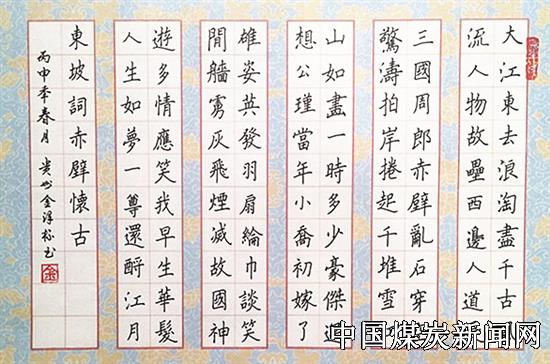 大江東去浪淘盡千古
流人物故壘西邊人道
三國周郎赤壁亂石穿
驚濤拍岸捲起千堆雪
山如畫一時多少豪傑
想公瑾當年小喬初嫁了
雄姿英發羽扇綸巾談笑
間檣虜灰飛煙滅故國神
遊多情應笑我早生華髮
人生如夢一尊還酹江月
東坡詞赤壁懷古
丙申季春月 貴州金
金
中国煤炭新闻网